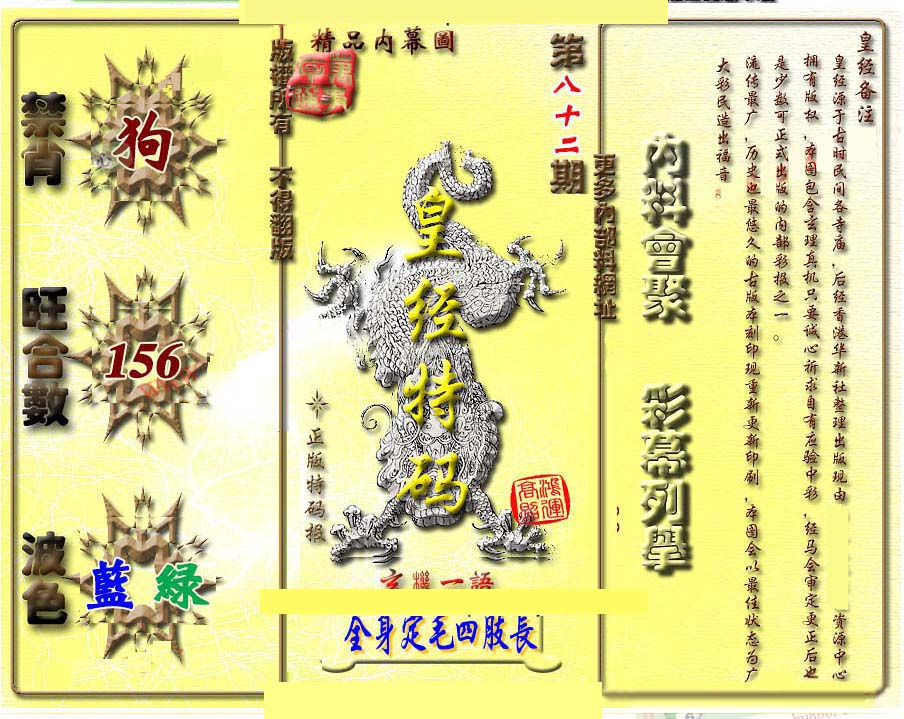 精品内幕圖
第八十二期
版權所有 不得翻版
更多內部料網址
禁肖
狗
旺合數
156
波色
藍 綠
皇经特码
正版特码报
鴻運高照
玄機一語
全身定毛四肢長
內料會聚
彩幕列舉
皇经备注
皇经源于古时民间各寺庙,后经香港华新社整理出版现由
资源中心
拥有版权,本图包含玄理真机只要诚心祈求自有应验中彩,经马会审定更正后也
是少数可正式出版的内部彩报之一。
流传最广,历史也最悠久的古版本刻印现重新更新印刷,本图会以最佳状态为广
大彩民造出福音